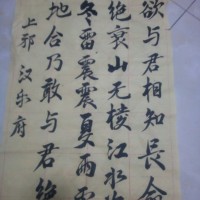 欲与君相知長命
绝衰山无棱江水
冬雷震震夏雨
地合乃敢与君绝
上邪 汉乐府